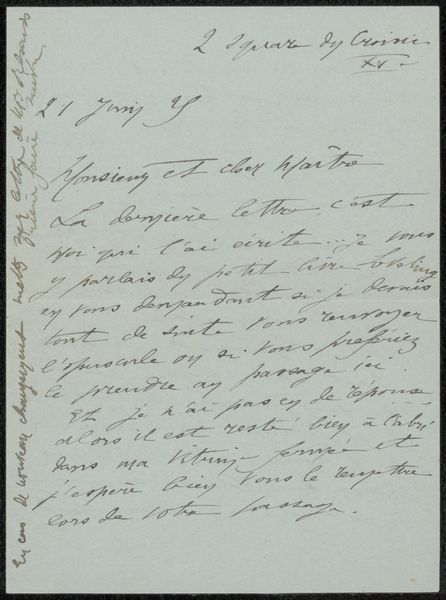 2 Square du Croisic
XV.
21 Juin 25
Monsieur et cher Maître
La dernière lettre, c'est
moi qui l'ai écrite... je vous
y parlais du petit livre
en vous demandant si je devais
tout de suite vous renvoyer
l'opuscule ou si vous préfériez
le prendre au passage ici.
Et je n'ai pas eu de réponse,
alors il est resté bien à l'abri
dans ma vitrine fermée et
j'espère bien vous le remettre
lors de votre passage.
En cas de nouveau changement